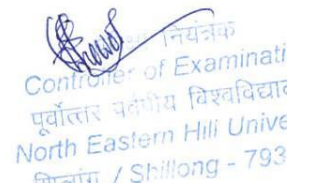 नियंत्रक
Controller of Examinati
पूर्वोत्तर पर्वतीय विश्वविद्याल
North Eastern Hill Unive
शिलांग / Shillong - 793